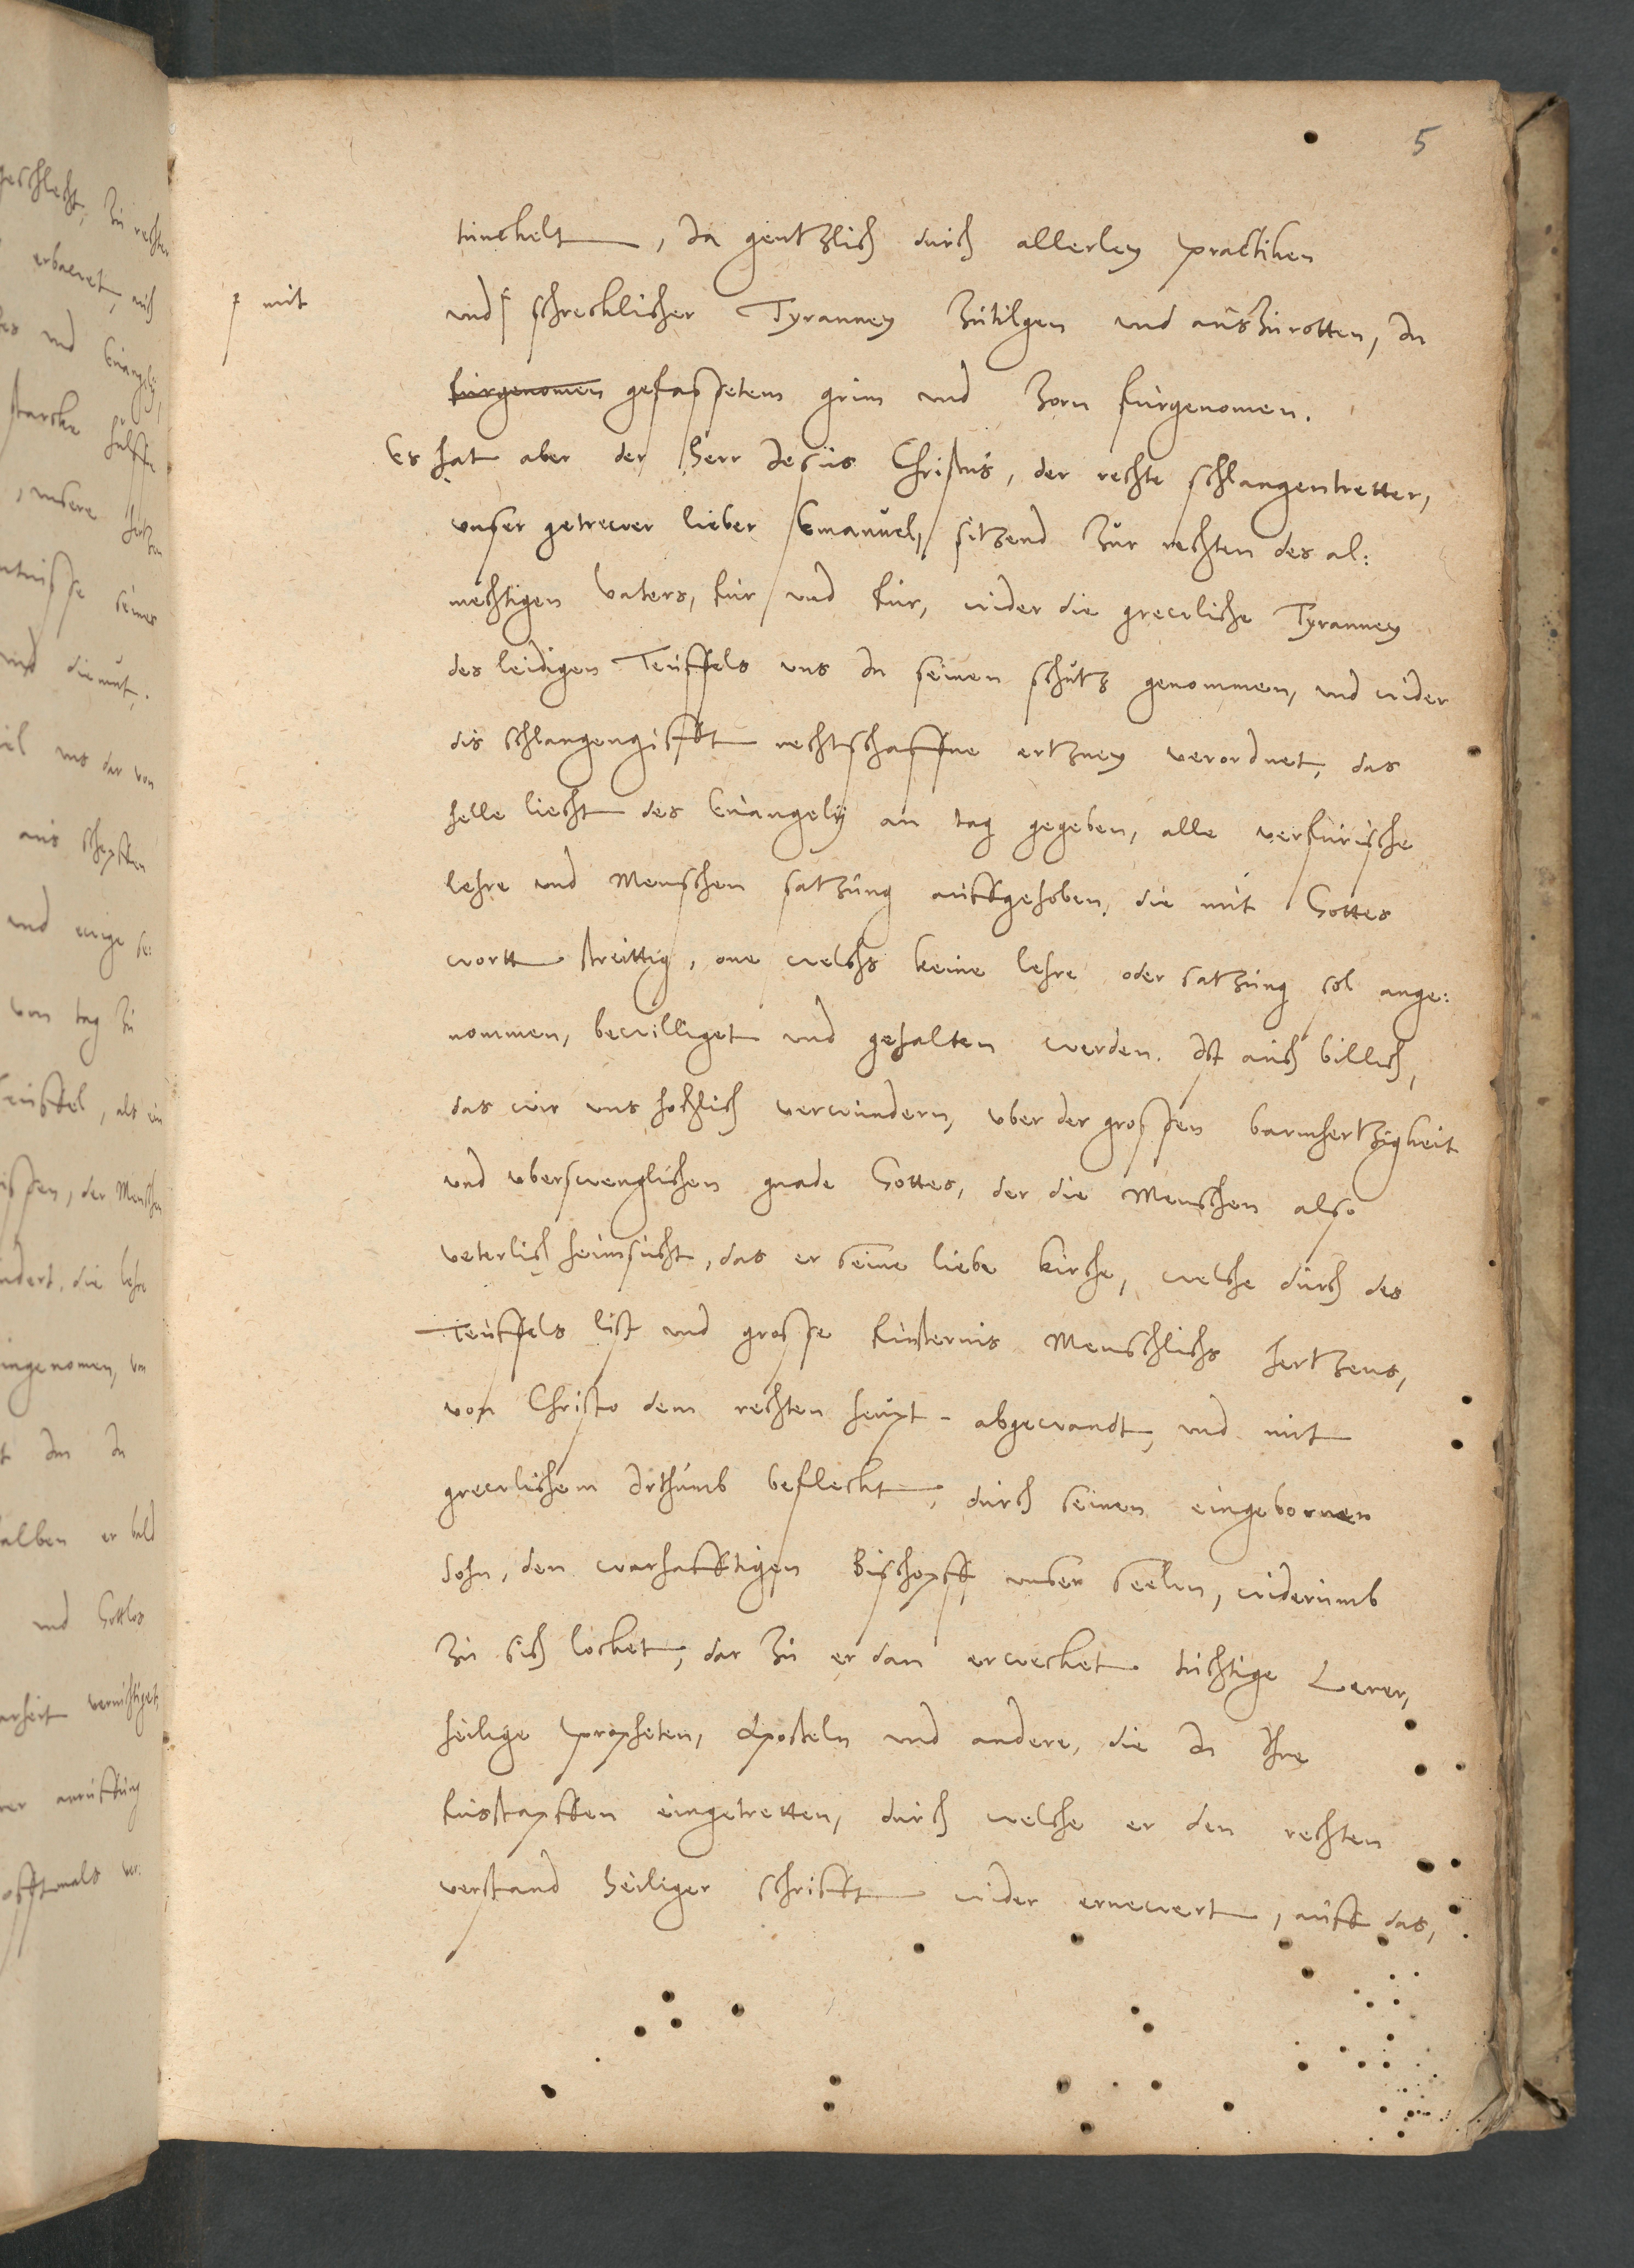 5
tunckelt, Ja gentzlich durch allerley practiken
mit
und schrecklicher Tyranney zutilgen und auszurotten, In
furgenomen gefassetem grim und zorn furgenomen.
Es hat aber der Herr Jesus Christus, der rechte schlangentretter,
unser getrewer lieber Emanuel, sitzend zur rechten des al:
mechtigen vaters, fur und fur, wider die grewliche Tyranney
des leidigen Teuffels uns In seinen schutz genommen, und wider
dis schlangengifft rechtschaffne ertzney verordnet, das
helle liecht des Euangelij an tag gegeben, alle verfurische
lehre und Menschen satzung auffgehoben, die mit Gottes
wortt streittig, one welchs keine lehre oder satzung sol ange:
nommen, bewilliget und gehalten werden. Ist auch billich,
das wir uns hochlich verwundern, uber der grossen barmhertzigkeit
und uberswenglichen gnade Gottes, der die Menschen also
veterlich heimsucht, das er seine liebe kirche, welche durch des
Teuffels list und grosse finsternis Menschlichs hertzens,
von Christo dem rechten heupt abgewandt, und mit
grewlichem Irthumb befleckt, durch seinen eingebornen
Sohn, den warhafftigen Bischoff unser seelen, widerumb
zu sich locket, dar zu er dan erwecket tuchtige Lerer,
heilige propheten, Aposteln und andere, die In Ihre
fusstapffen eingetretten, durch welche er den rechten
verstand Heiliger schrifft wider ernewert, auff das,